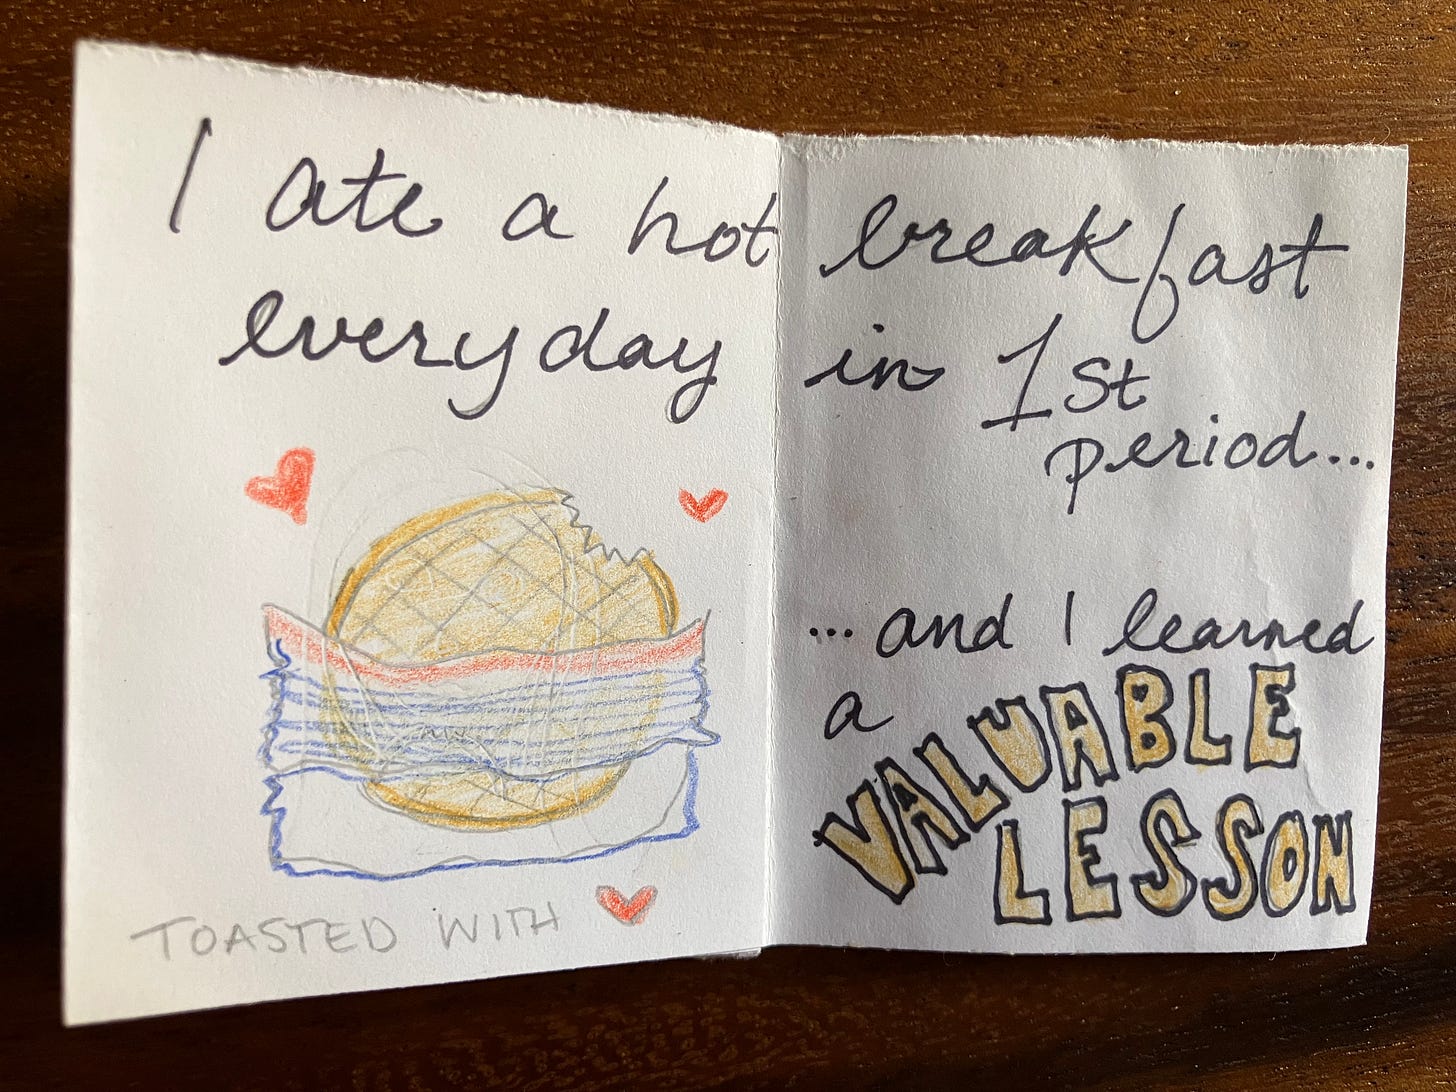 I ate a hot breakfast
everyday in 1st
period...
TOASTED WITH
... and I learned
a
VALUABLE
LESSON